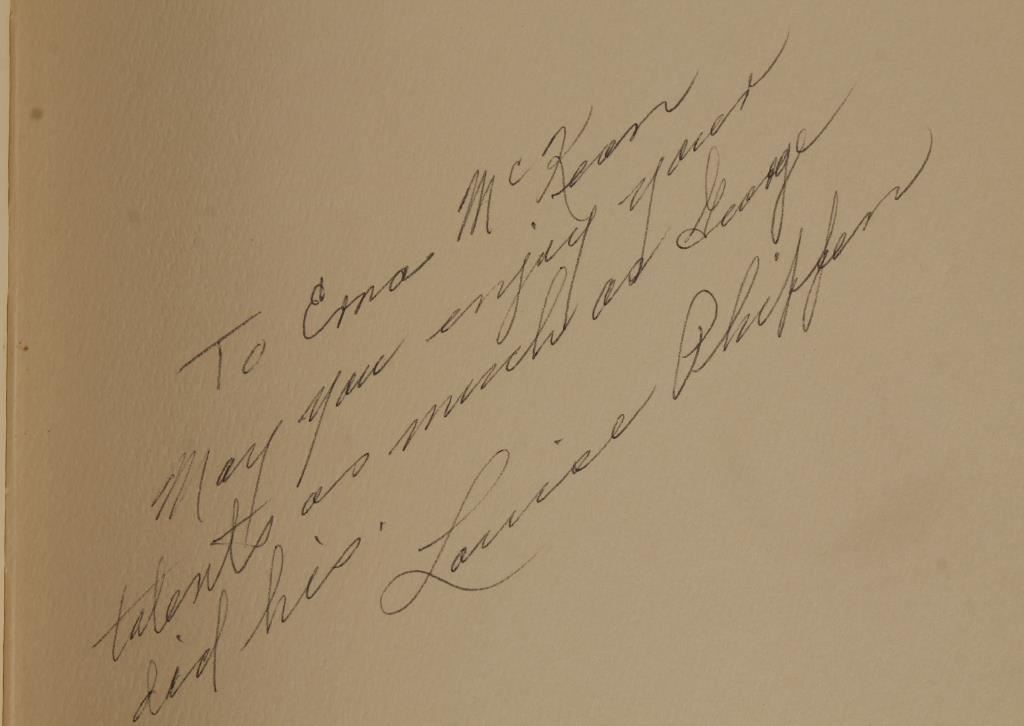 To Erna McKean
May you enjoy your
talents as much as George
did his. Louise Phippen